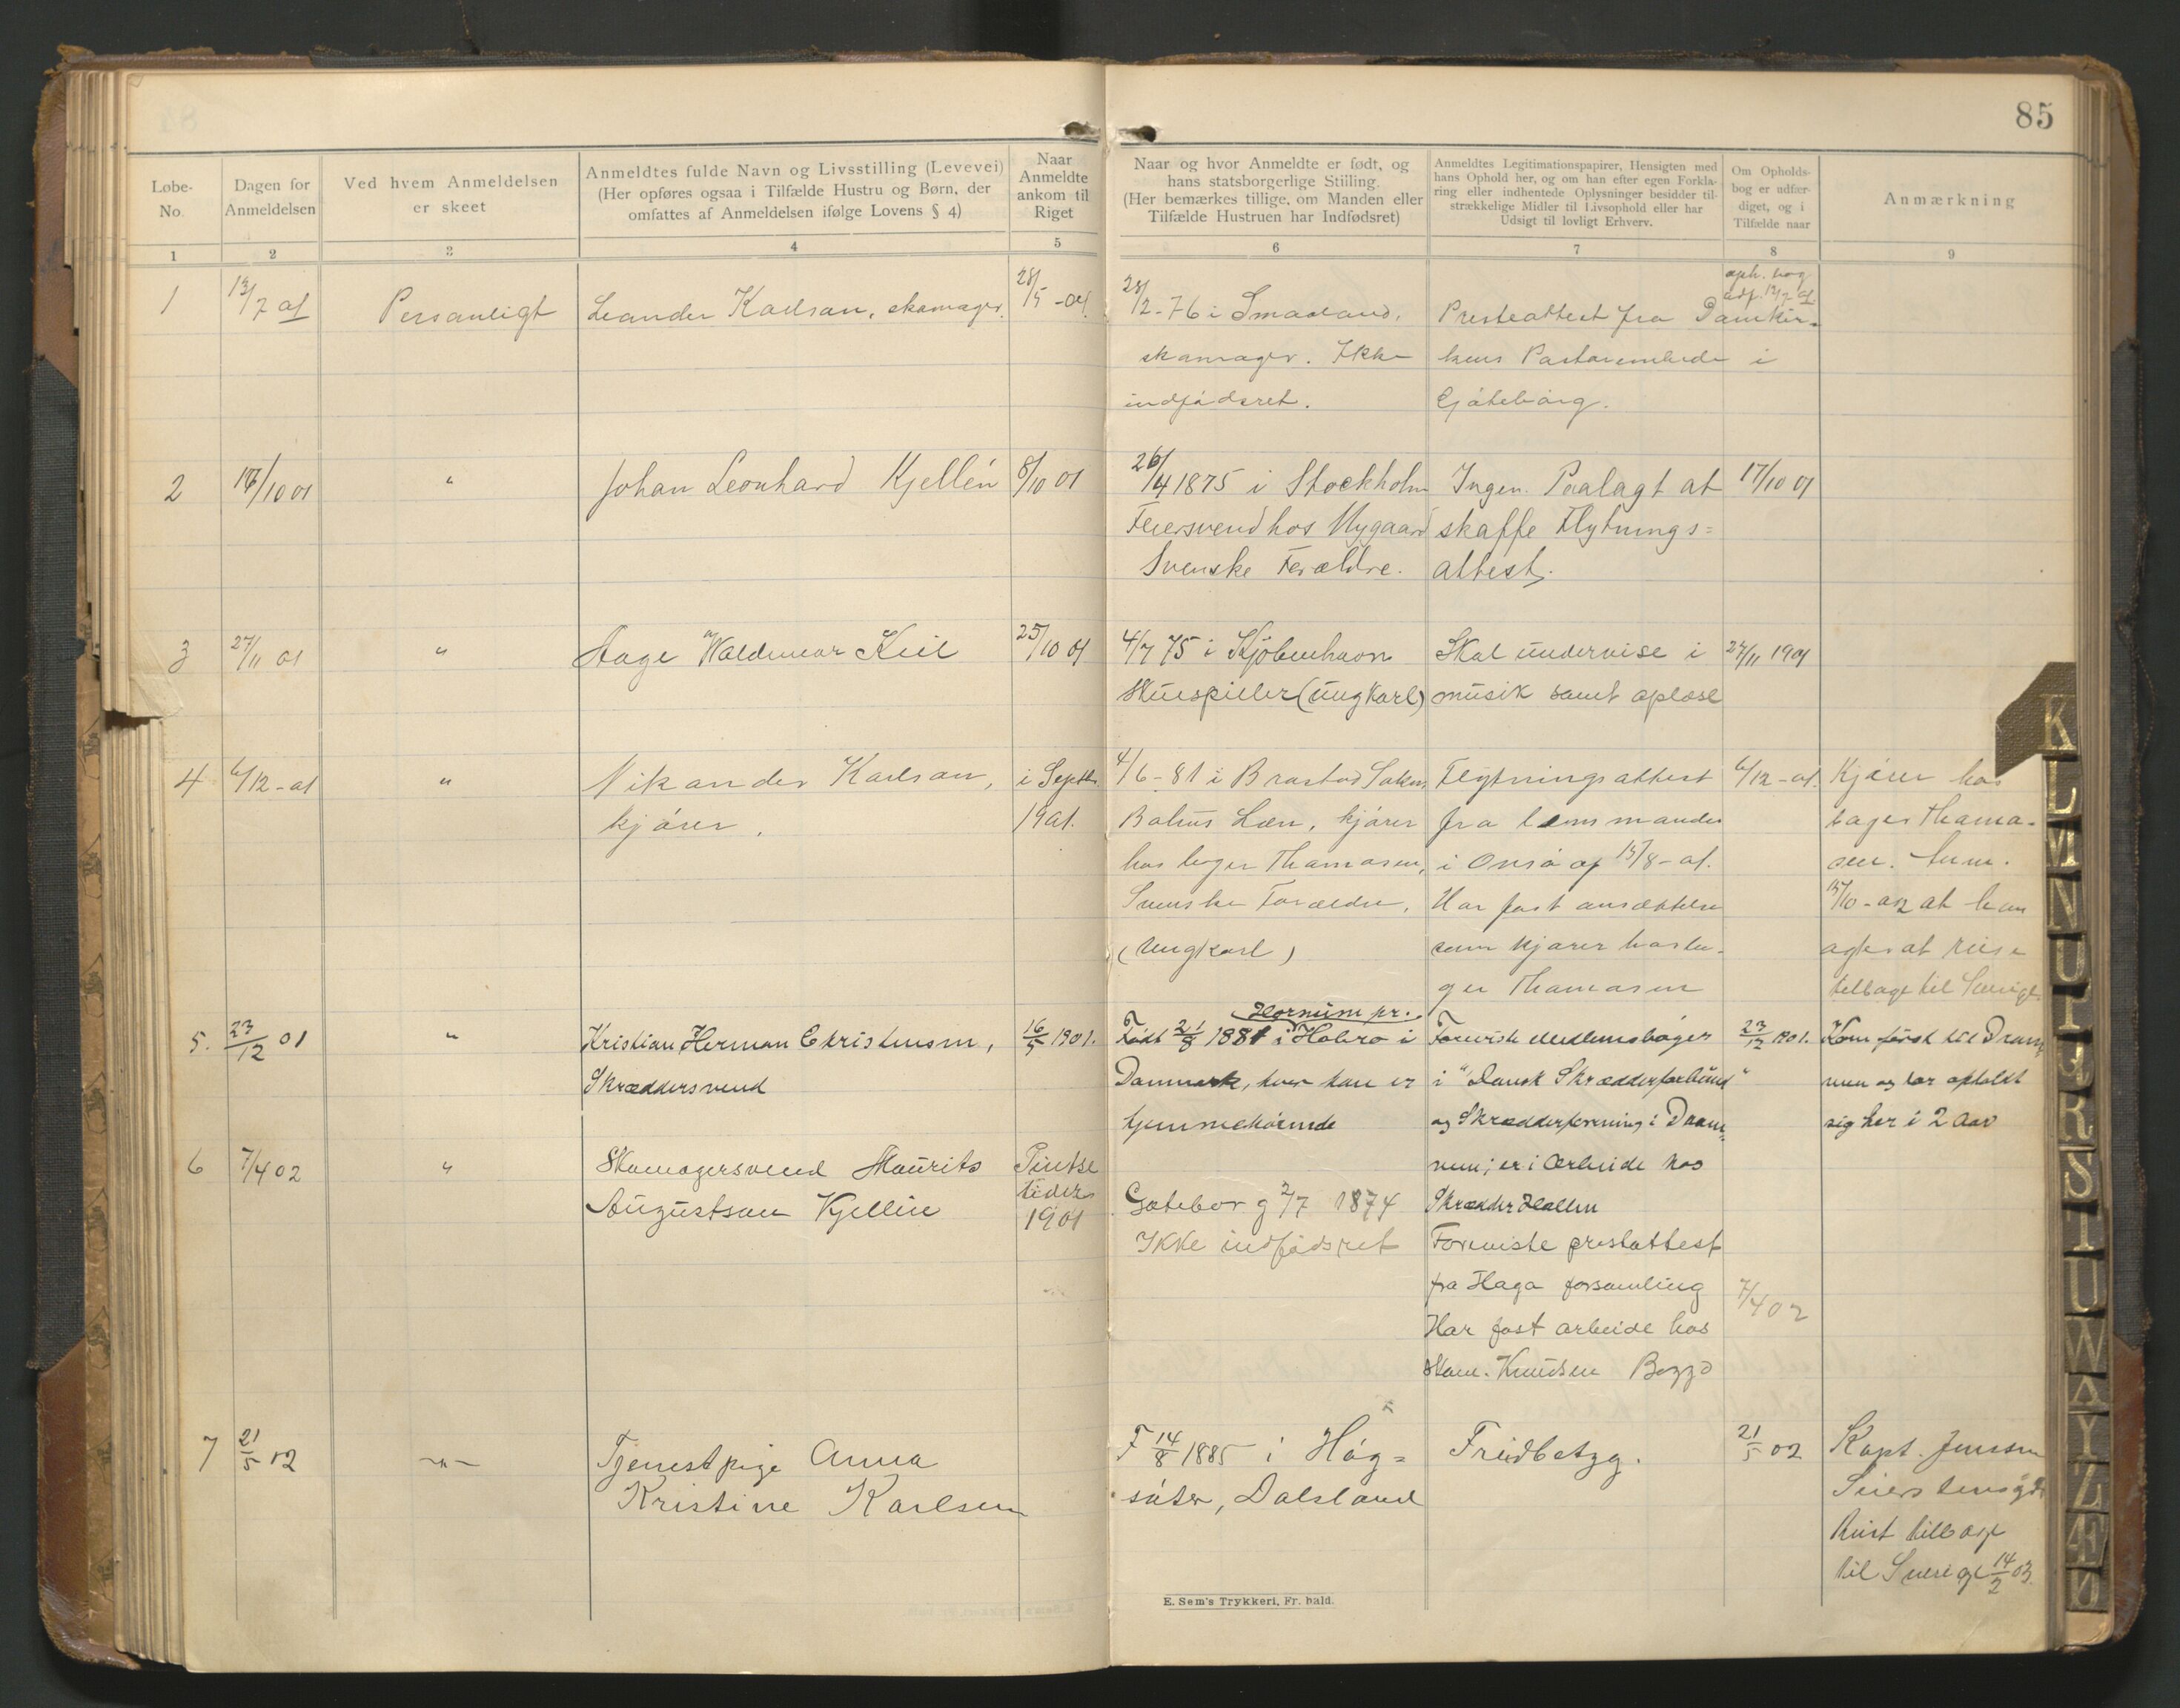 85
Løbe-
No.
Dagen for
Anmeldelsen
Ved hvem Anmeldelsen
er skeet
Anmeldtes fulde Navn og Livsstilling (Levevei)
(Her opføres ogsaa i Tilfælde Hustru og Børn, der
omfattes af Anmeldelsen ifølge Lovens § 4)
Naar
Anmeldte
ankom til
Riget
Naar og hvor Anmeldte er født, og
hans statsborgerlige Stilling.
(Her bemærkes tillige, om Manden eller
Tilfælde Hustruen har Indfødsret)
Anmeldtes Legitimationspapirer, Hensigten med
hans Ophold her, og om han efter egen Forkla-
ring eller indhentede Oplysninger besidder til-
strækkelige Midler til Livsophold eller har
Udsigt til lovligt Erhverv.
Om Opholds-
bog er udfær-
diget, og i
Tilfælde naar
Anmærkning
1 2 3 4 5 6 7 8 9
1
13/7 01
Personligt
Leander Karlson, skomager.
28/5 - 01
28/2 - 76 i Smaaland,
skomager. Ikke
indfødsret.
Presteattest fra Domkir-
kens Pastorembede i
Gøteborg.
oph. bog
udf. 13/7 01.
2
16/10 01
"
Johan Leonhard Kjellén
8/10 01
26/4 1875 i Stockholm
Feiersvend hos Nygaard
Svenske Forældre.
Ingen. Paalagt at
skaffe Flytnings=
attest.
17/10 01
3
27/11 01
"
Aage Waldemar Keil
25/10 01
4/7 75 i Kjøbenhavn
Skuespiller (ungkarl)
Skal undervise i
musik samt oplæse
27/11 1901
4
6/12 - 01
"
Nikander Karlson,
kjører.
i Septbr.
1901.
4/6 - 81 i Brastad Soken
Bohus Læn, kjører
hos bager Thomasen,
Svenske Forældre.
(Ungkarl)
Flytningsattest
fra lensmanden
i Onsø af 15/8 - 01.
Har fast ansættelse
som kjører hos ba-
ger Thomasen
6/12 - 01.
Kjører hos
bager Thoma-
sen.
15/10 - 02 at han
agter at reise
tilbage til Sverige.
5.
23/12 01
"
Kristian Herman Christensen,
Skræddersvend
16/5 1901.
Hornum pr.
Født 21/8 1881 i Hobro i
Danmark, hvor han er
hjemmehørende
Foreviste Medlemsbøger
i "Dansk Skrædderforbund"
og Skrædderforening i Dram-
men; er i Arbeide hos
Skrædder Hallen
23/12 1901.
Kom først til Dram-
men og har opholdt
sig her i 2 Aar
6
7/4 02
"
Skomagersvend Mauritz
Augustson Kjellin
Pintse
tider
1901
Gøteborg 2/7 1874
Ikke indfødsret
Foreviste prestattest
fra Haga forsamling
Har fast arbeide hos
Skom. Knudsen
7/4 02
7
21/5 02
-"-
Tjenestpige Anna
Kristine Karlsen
F 14/8 1885 i Høg=
säter, Dalsland
Fridbetyg.
21/5 02
Kapt. Jenssen
Reist tilbage
til Sverige 14/2 03.
E. Sem's Trykkeri, Fr. hald.
K
L
M
N
O
P
R
S
T
U
W
A
Y
Z
Æ
Ø